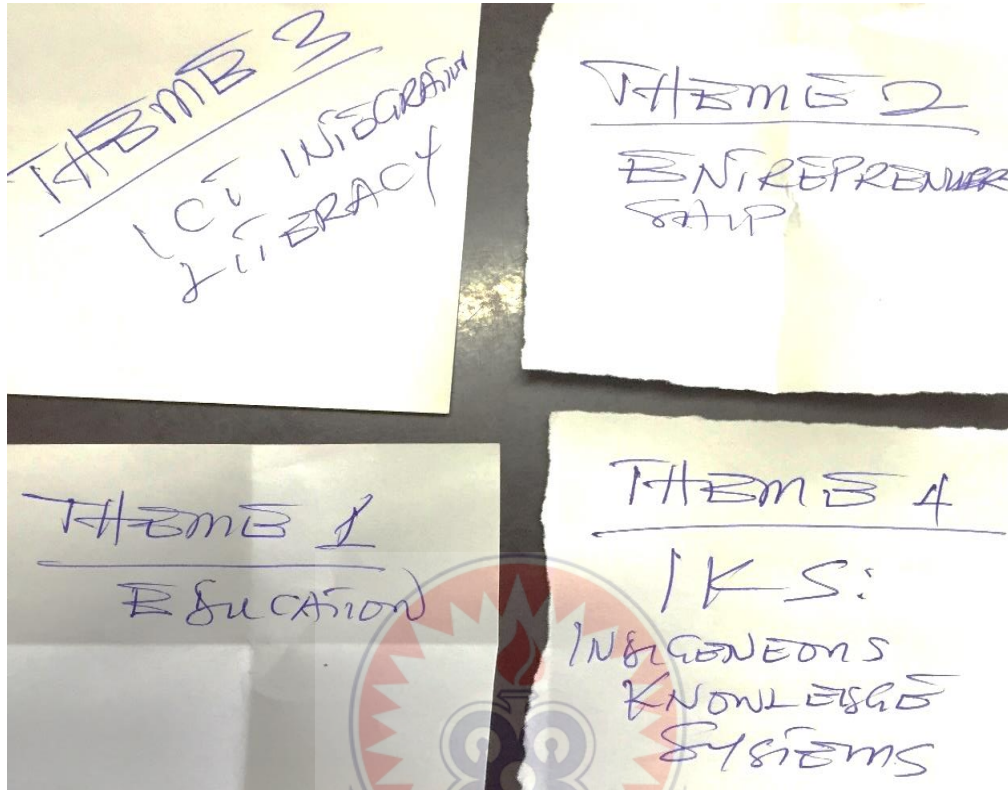 THEME 3
ICT INTEGRATION
LITERACY
THEME 2
ENTREPRENUER
SHIP
THEME 1
EDUCATION
THEME 4
IKS:
INDIGENEOUS
KNOWLEDGE
SYSTEMS